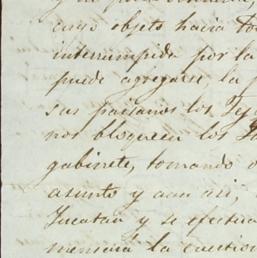 cuyo objeto hacia
interrumpida por la
puede agregarse, la
sus paisanos los
nos bloqueen los
gabinete, tomando
asunto y aun asi,
Yucatan y se
la cuestion